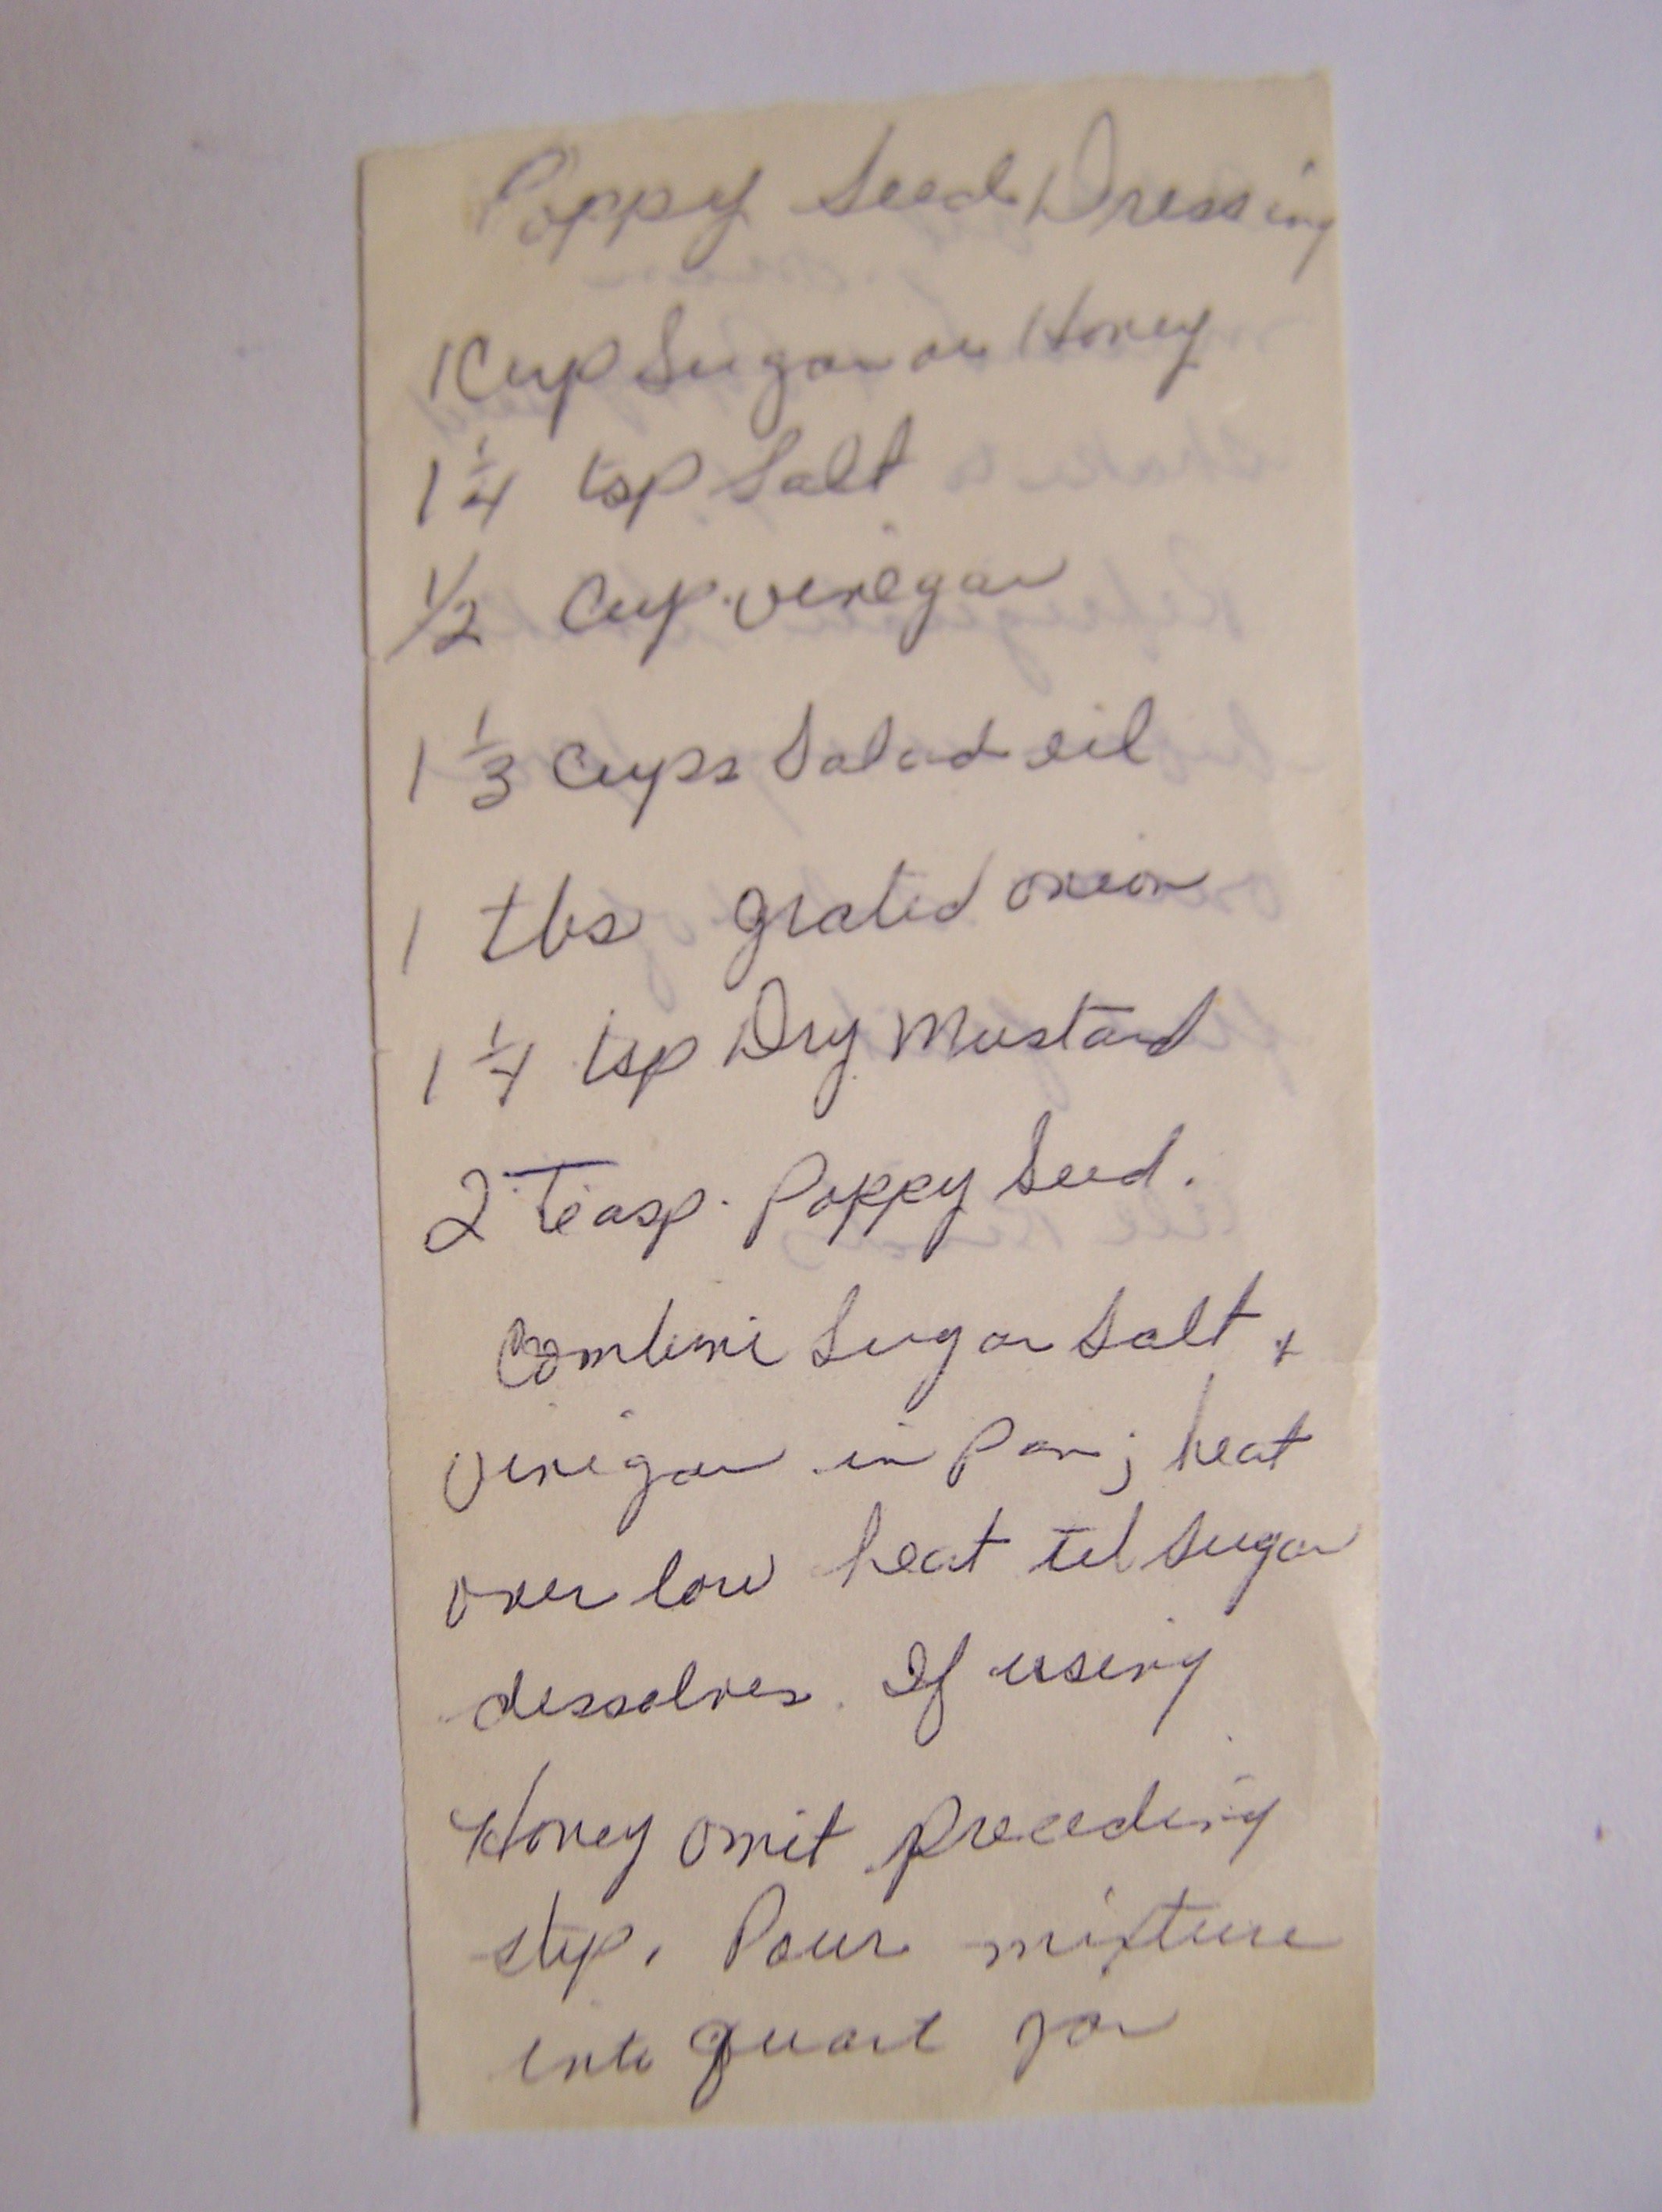 Poppy Seed Dressing
1 Cup Sugar or Honey
1 1/4 tsp Salt
1/2 Cup vinegar
1 1/3 Cups Salad oil
1 tbs grated onion
1 1/4 tsp Dry Mustard
2 Teasp. Poppy Seed.
Combine Sugar Salt +
Vinegar in Pan; heat
over low heat til sugar
dissolves. If using
Honey omit preceeding
step. Pour mixture
into quart jar